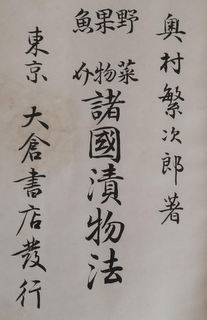 奥村繁次郎著
野菜
果物
魚介
諸國漬物法
東京 大倉書店發行